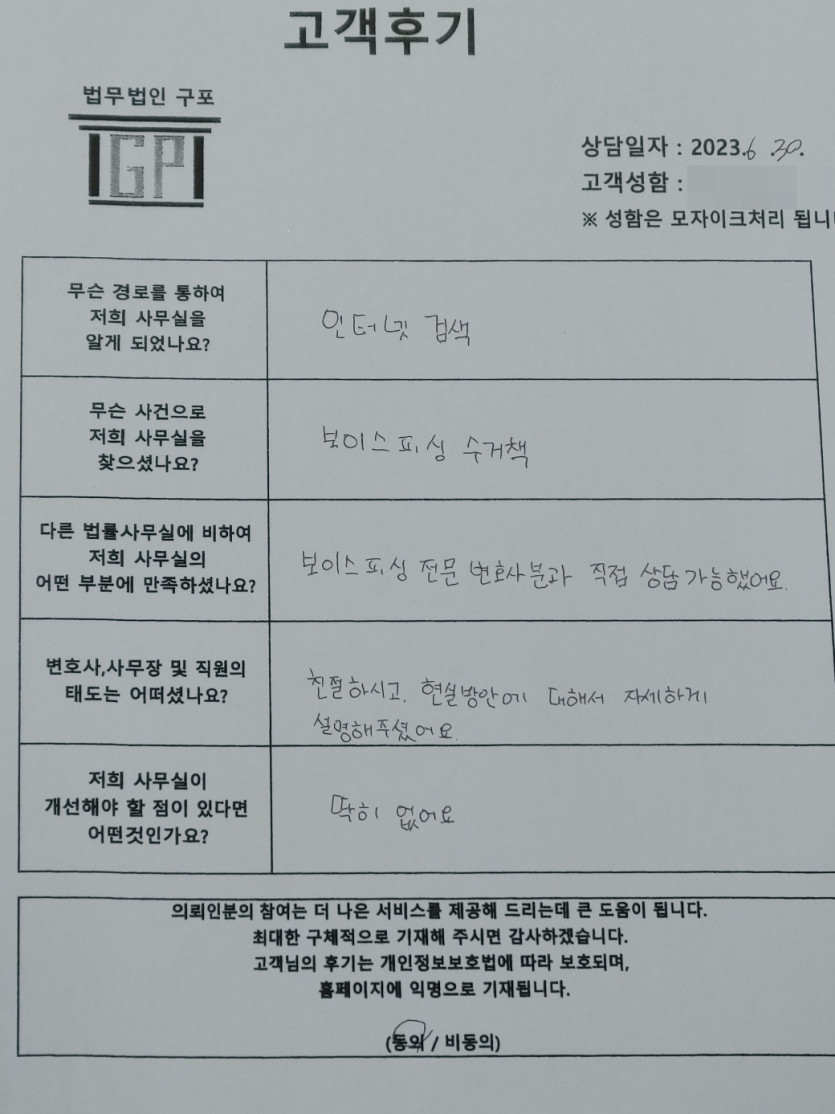 고객후기
법무법인 구포
IGPI
상담일자 : 2023.6.30.
고객성함 :
※ 성함은 모자이크처리 됩니
무슨 경로를 통하여
저희 사무실을
알게 되었나요?
인터넷 검색
무슨 사건으로
저희 사무실을
찾으셨나요?
보이스피싱 수거책
다른 법률사무실에 비하여
저희 사무실의
어떤 부분에 만족하셨나요?
보이스피싱 전문 변호사분과 직접 상담가능했어요.
변호사,사무장 및 직원의
태도는 어떠셨나요?
친절하시고, 현실방안에 대해서 자세하게
설명해주셨어요.
저희 사무실이
개선해야 할 점이 있다면
어떤것인가요?
딱히 없어요
의뢰인분의 참여는 더 나은 서비스를 제공해 드리는데 큰 도움이 됩니다.
최대한 구체적으로 기재해 주시면 감사하겠습니다.
고객님의 후기는 개인정보보호법에 따라 보호되며,
홈페이지에 익명으로 기재됩니다.
(동의 / 비동의)